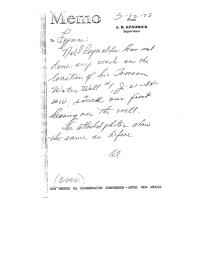 Memo
5-12-75
From
A. R. KENDRICK
Supervisor
To Lynn:
Neil Reynolds has not
done any work on the
location of his
Water Well #1 J-21-
since our first
hearing on the well.
The attached photos show
the same as before.
(over)
NEW MEXICO OIL CONSERVATION COMMISSION - AZTEC, NEW MEXICO